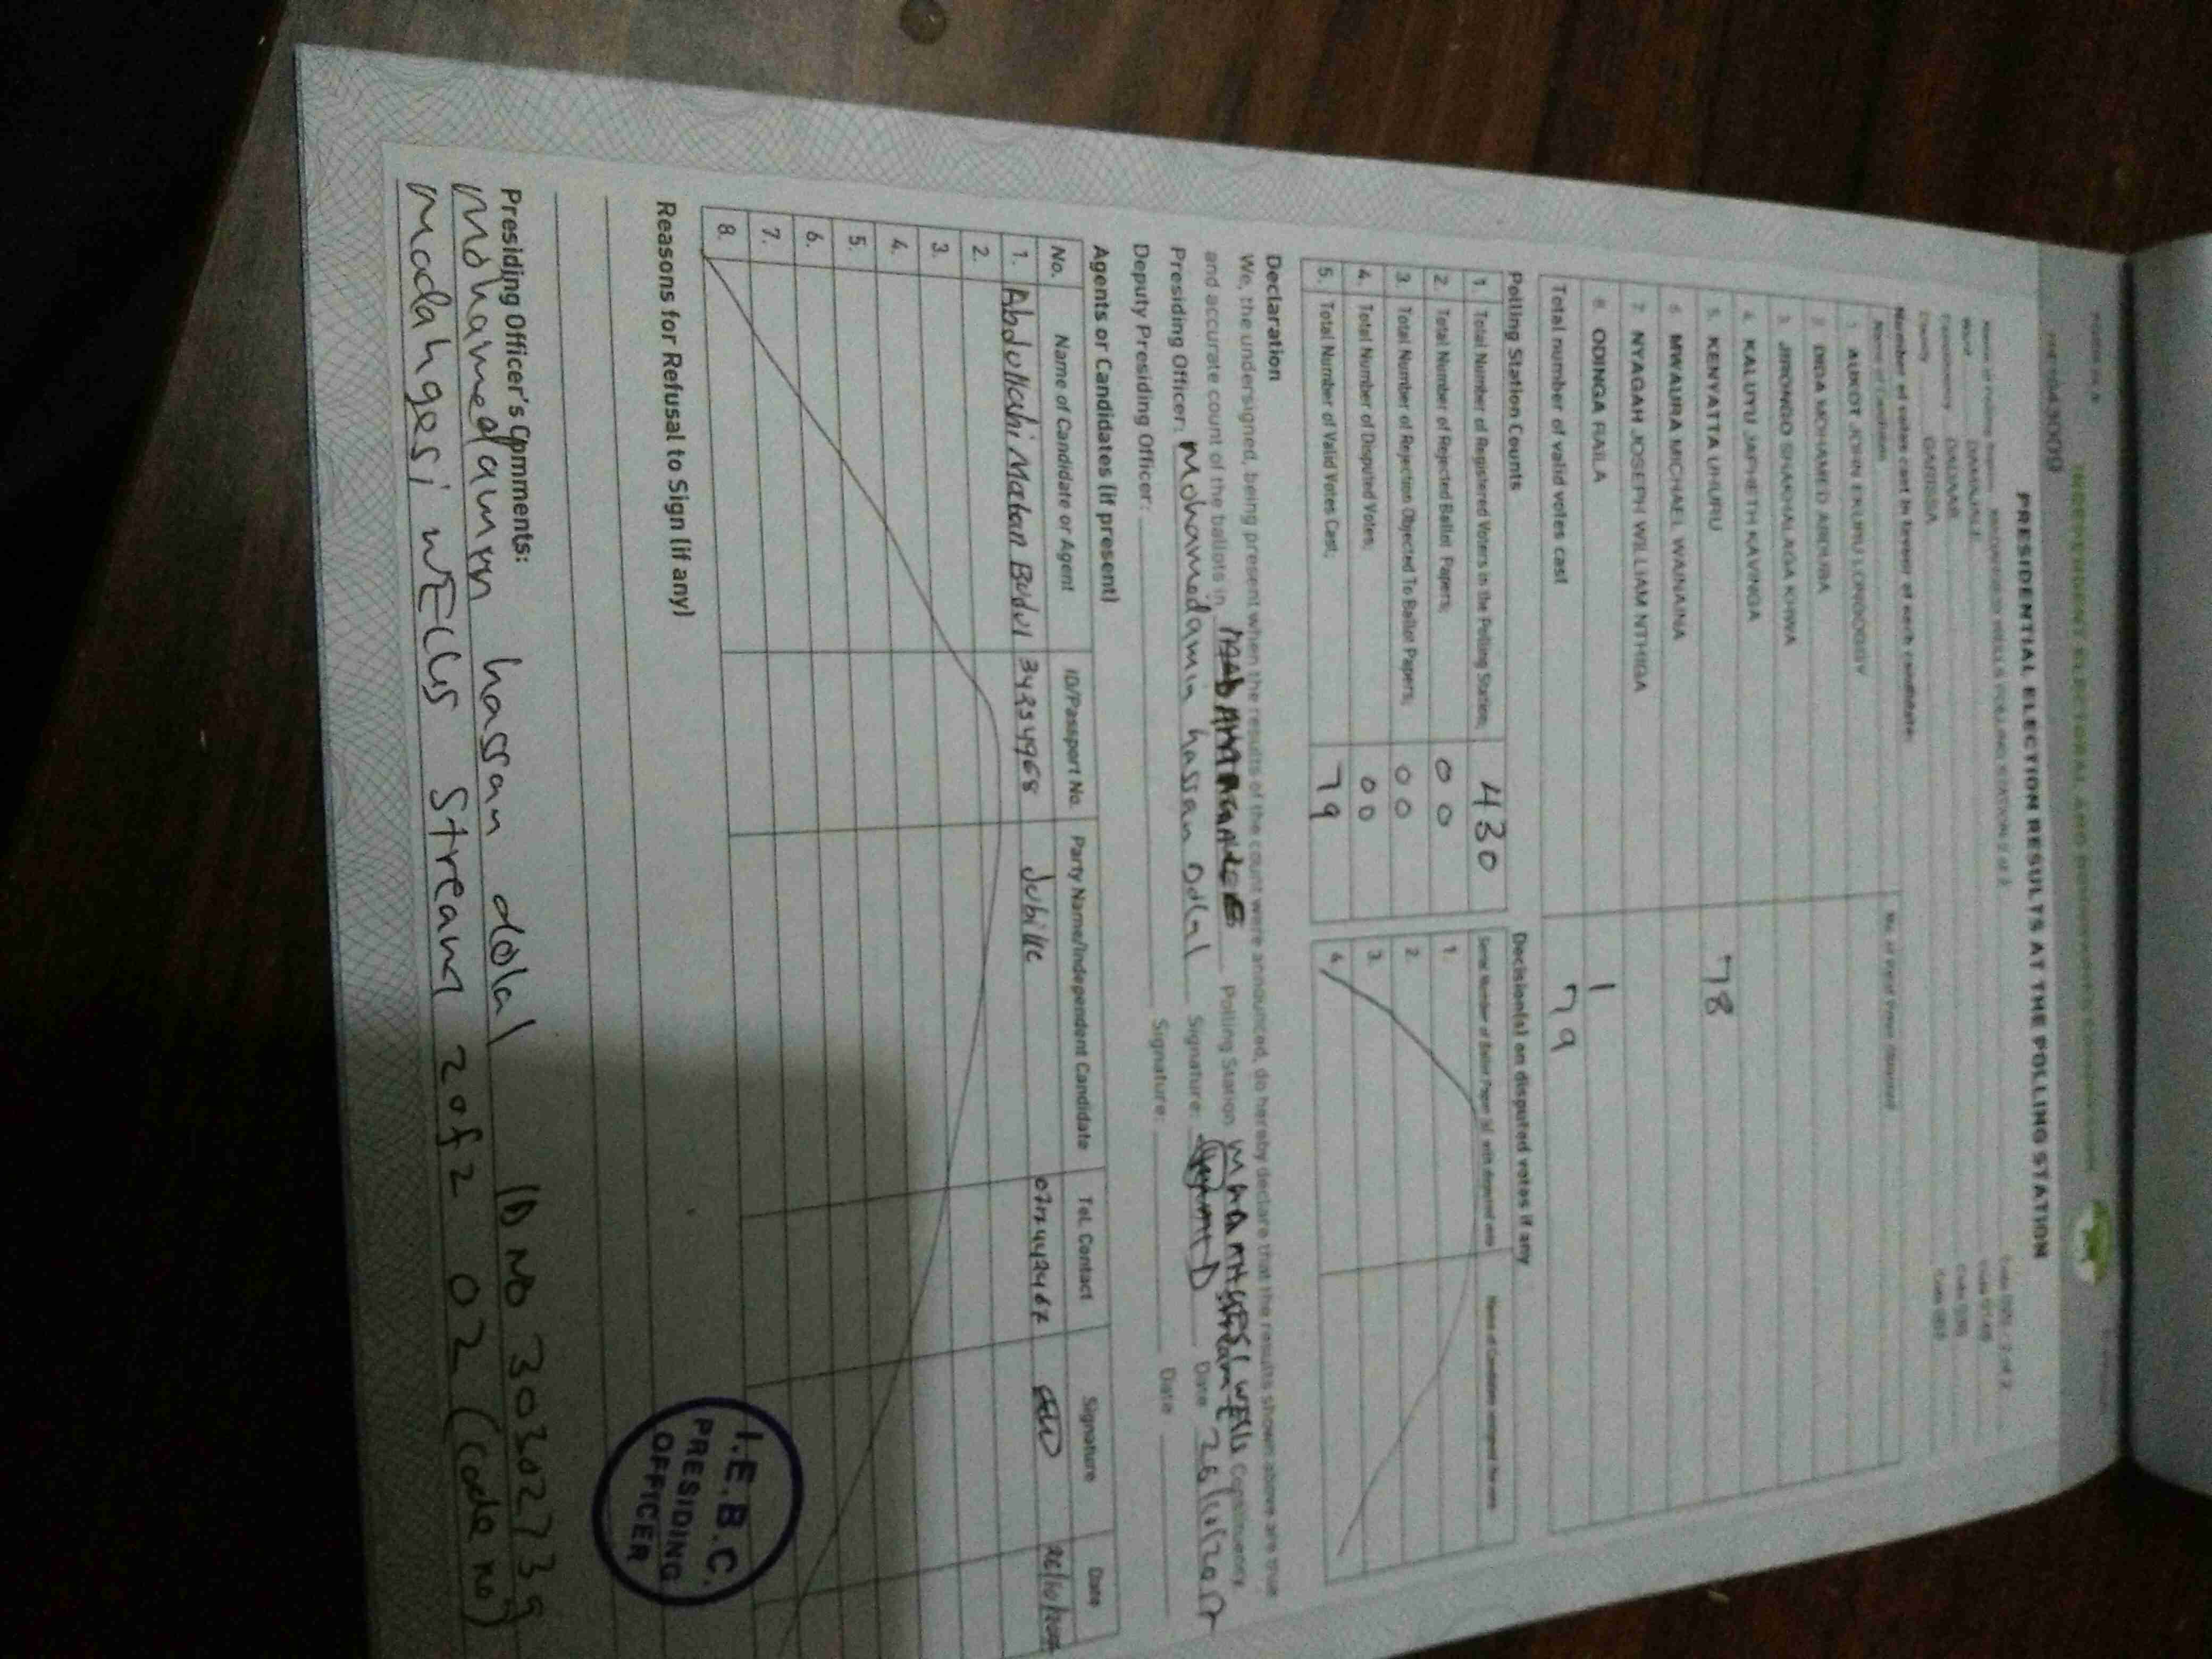 INDEPENDENT ELECTORAL AND BOUNDARIES COMMISSION
PRESIDENTIAL ELECTION RESULTS AT THE POLLING STATION
Name of Polling Station WELLS POLLING STATION 2 of 2
Ward DAMAJALE
Constituency DADAAB
County GARISSA
Number of votes cast in favour of each candidate:
Name of Candidate No. of Valid Votes Obtained
1. AUKOT JOHN EKURU LONGOGGY
2. DIDA MOHAMED ABDUBA
3. JIRONGO SHAKHALAGA KHWA
4. KALUYU JAPHETH KAVINGA
5. KENYATTA UHURU 78
6. MWAURA MICHAEL WAINAINA
7. NYAGAH JOSEPH WILLIAM NTHIGA
8. ODINGA RAILA 1
Total number of valid votes cast 79
Polling Station Counts
1. Total Number of Registered Voters in the Polling Station; 430
2. Total Number of Rejected Ballot Papers; 00
3. Total Number of Rejection Objected To Ballot Papers; 00
4. Total Number of Disputed Votes; 00
5. Total Number of Valid Votes Cast; 79
Decision(s) on disputed votes if any
Serial Number of Ballot Paper (s) with disputed vote Name of Candidate assigned the vote
1.
2.
3.
4.
Declaration
We, the undersigned, being present when the results of the count were announced, do hereby declare that the results shown above are true
and accurate count of the ballots in Polling Station MADAHGESI WELLS Stream 2 Constituency.
Presiding Officer: Mohamedamin hassan Dolal Signature: Date 26/10/2017
Deputy Presiding Officer: Signature: Date
Agents or Candidates (if present)
No. Name of Candidate or Agent ID/Passport No. Party Name/Independent Candidate Tel. Contact Signature Date
1. Abdullahi Matan Budul 34354968 Jubilee 26/10/2017
2.
3.
4.
5.
6.
7.
8.
Reasons for Refusal to Sign (if any)
I.E.B.C.
PRESIDING
OFFICER
Presiding Officer's Comments:
Mohamedamin hassan dolal ID NO 30302739
madahgesi WELLS Stream 2 of 2 02 (code no)